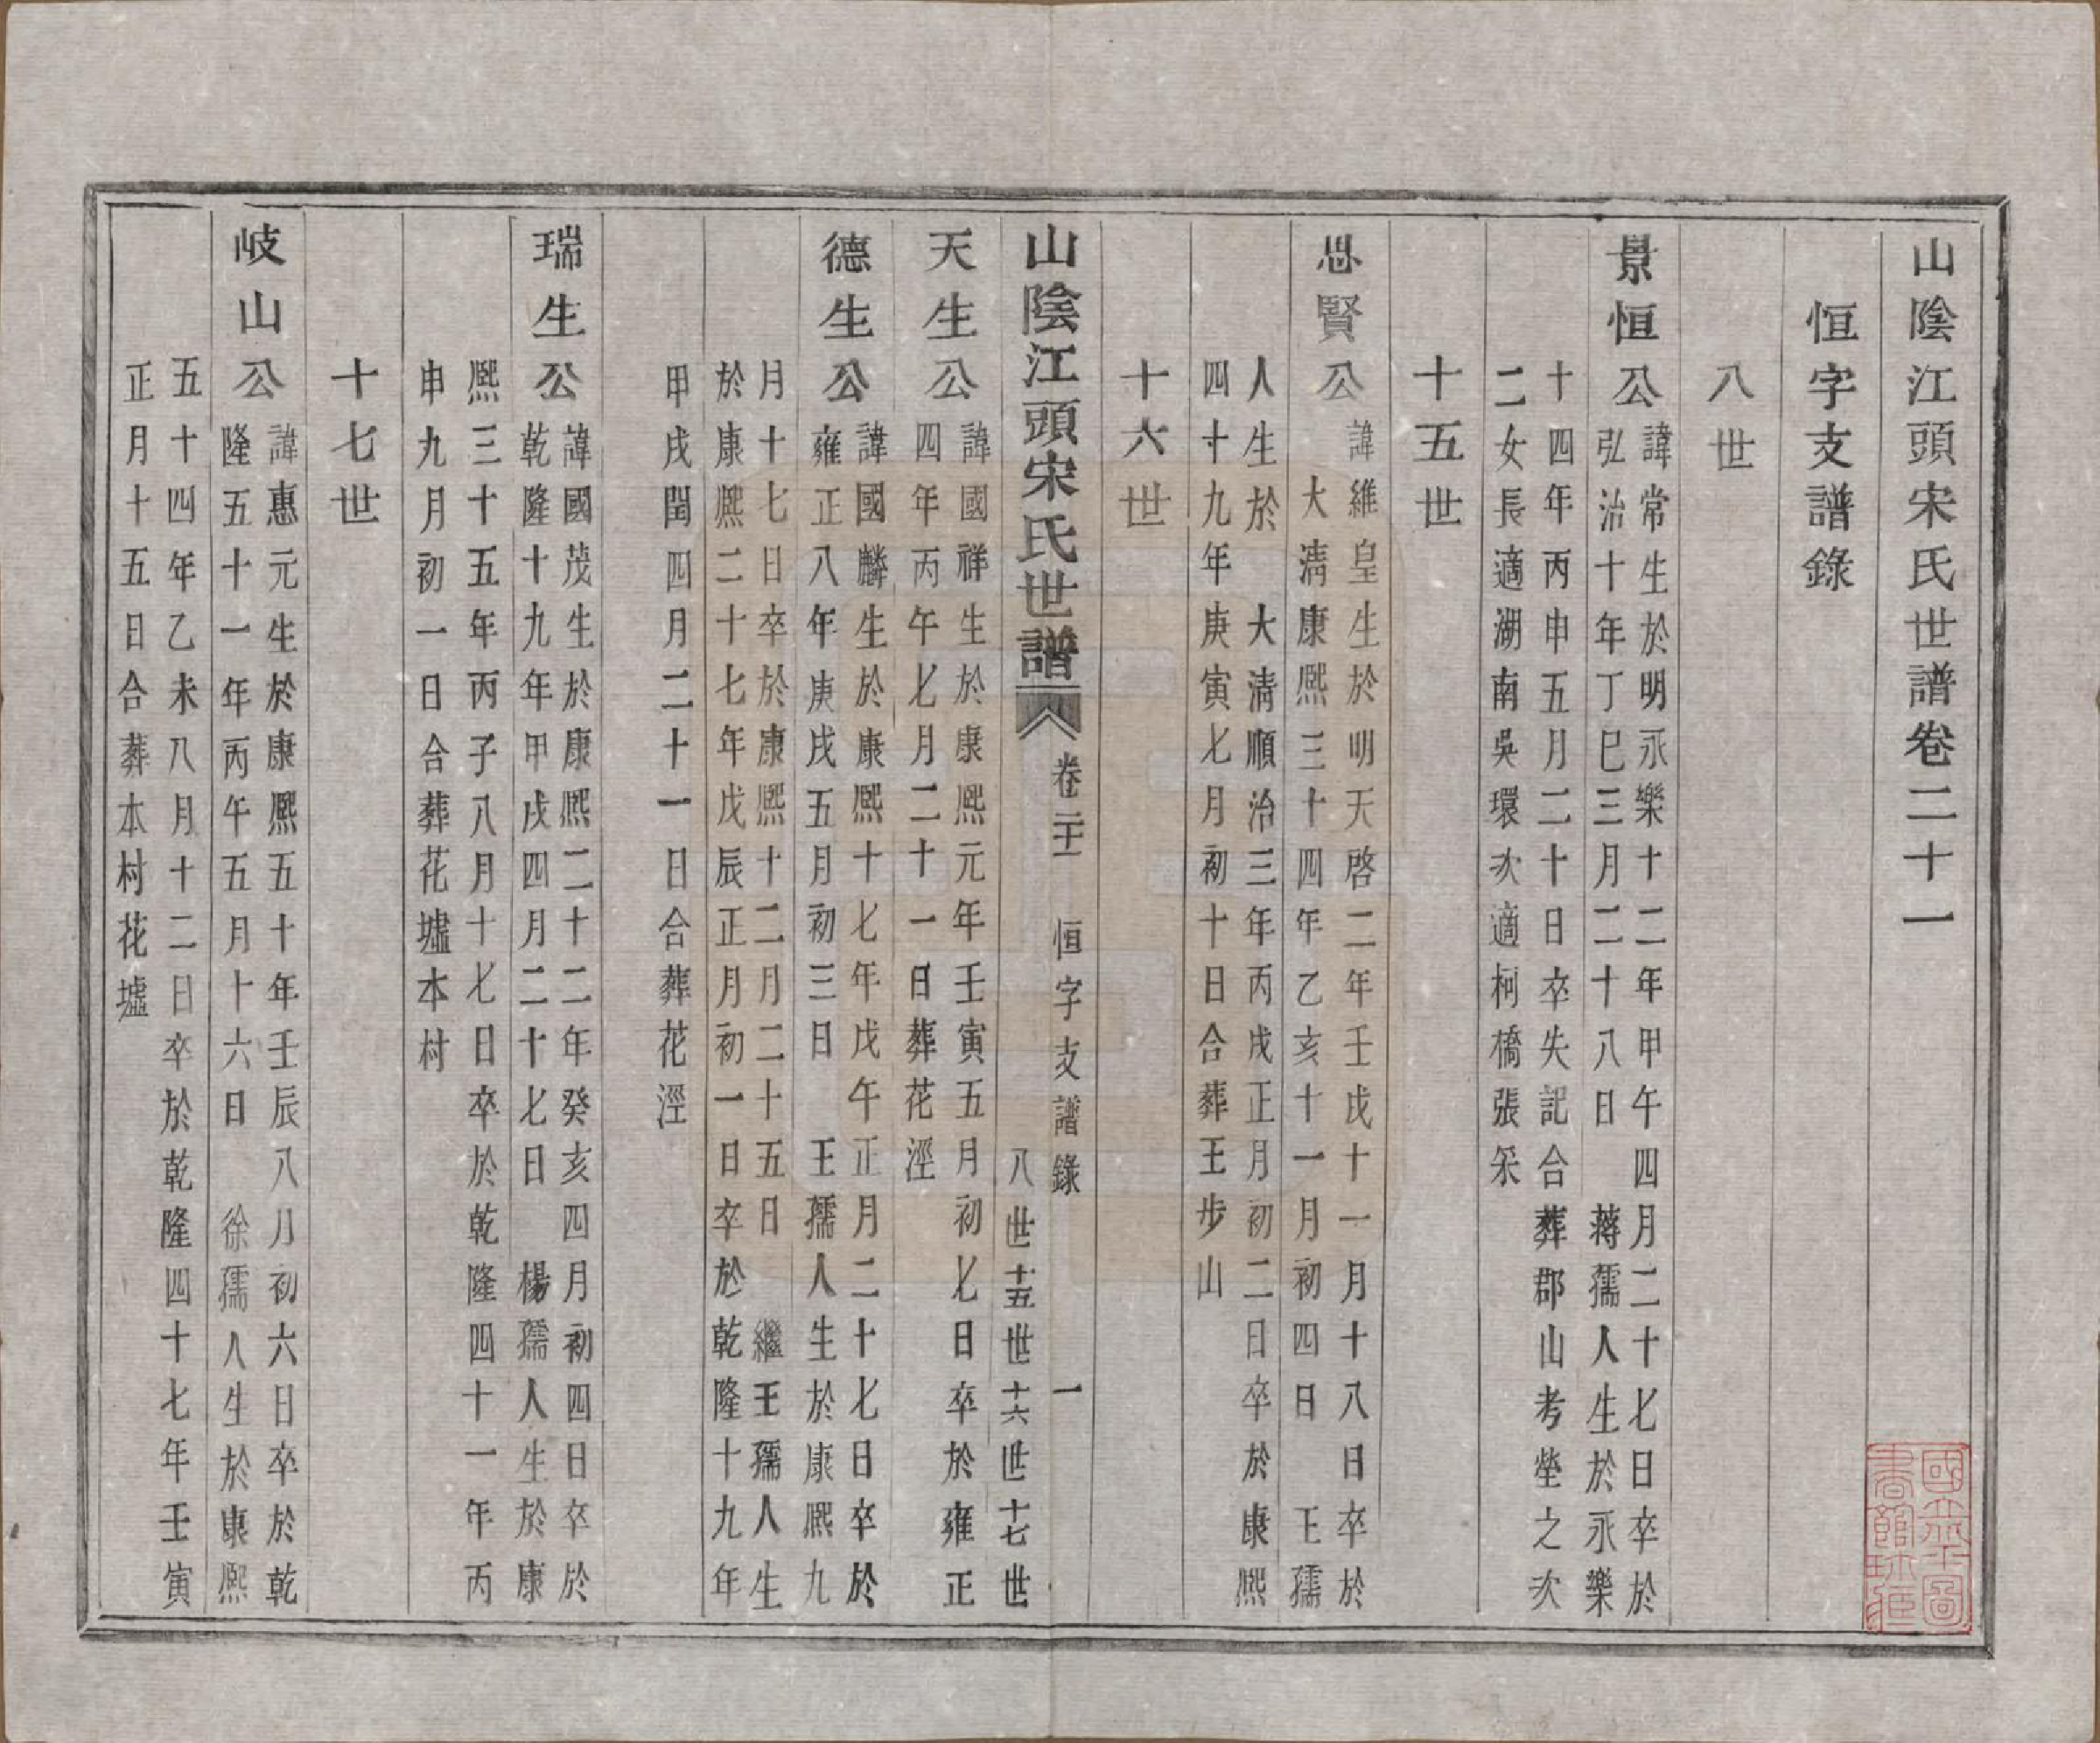 山陰江頭宋氏世譜卷二十一
恒字支譜錄
八世
景恒公
諱常生於明永樂十二年甲午四月二十七日卒於
弘治十年丁巳三月二十八日　蔣孺人生於永樂
十四年丙申五月二十日卒失記合葬郡山考塋之次
二女長適湖南吳環次適柯橋張采
十五世
思賢公
諱維皇生於明天啓二年壬戌十一月十八日卒於
大清康熙三十四年乙亥十一月初四日　王孺
人生於　大清順治三年丙戌正月初二日卒於康熙
四十九年庚寅七月初十日合葬王步山
十六世
山陰江頭宋氏世譜
卷二十一　恒字支譜錄　一
八世十五世十六世十七世
天生公
諱國祥生於康熙元年壬寅五月初七日卒於雍正
四年丙午七月二十一日葬花涇
德生公
諱國麟生於康熙十七年戊午正月二十七日卒於
雍正八年庚戌五月初三日　王孺人生於康熙九
月十七日卒於康熙十二月二十五日　繼王孺人生
於康熙二十七年戊辰正月初一日卒於乾隆十九年
甲戌閏四月二十一日合葬花涇
瑞生公
諱國茂生於康熙二十二年癸亥四月初四日卒於
乾隆十九年甲戌四月二十七日　楊孺人生於康
熙三十五年丙子八月十七日卒於乾隆四十一年丙
申九月初一日合葬花墟本村
十七世
岐山公
諱惠元生於康熙五十年壬辰八月初六日卒於乾
隆五十一年丙午五月十六日　徐孺人生於康熙
五十四年乙未八月十二日卒於乾隆四十七年壬寅
正月十五日合葬本村花墟
國立北平圖
書館珍藏